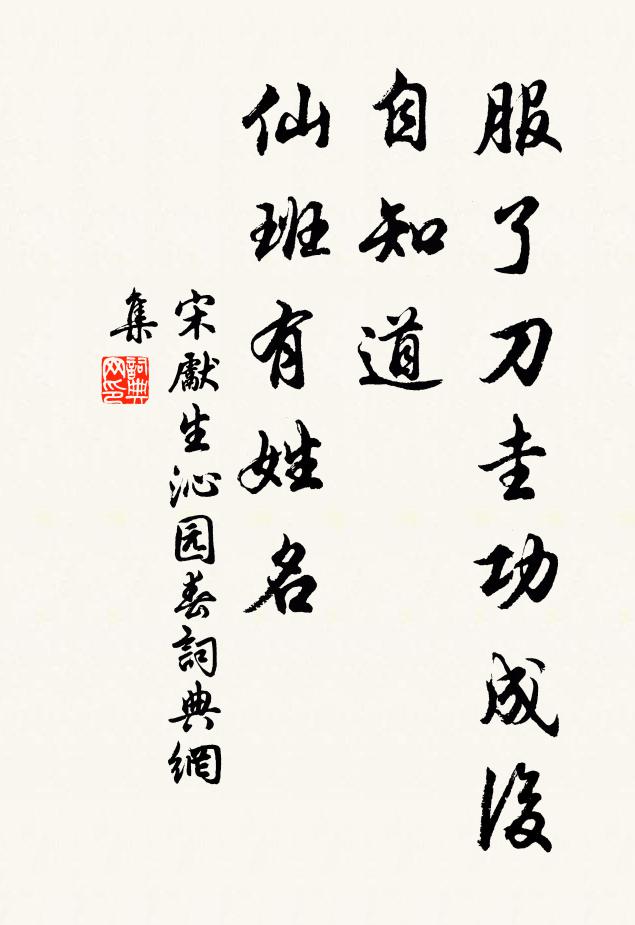 服了刀圭功成後
自知道
仙班有姓名
宋獻生沁园春詞典網
集
詞典网印